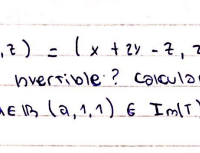 ,z) = ( x + 2y - z, z
nvertible? Calcula
a ∈ ℝ (a,1,1) ∈ Im(T)